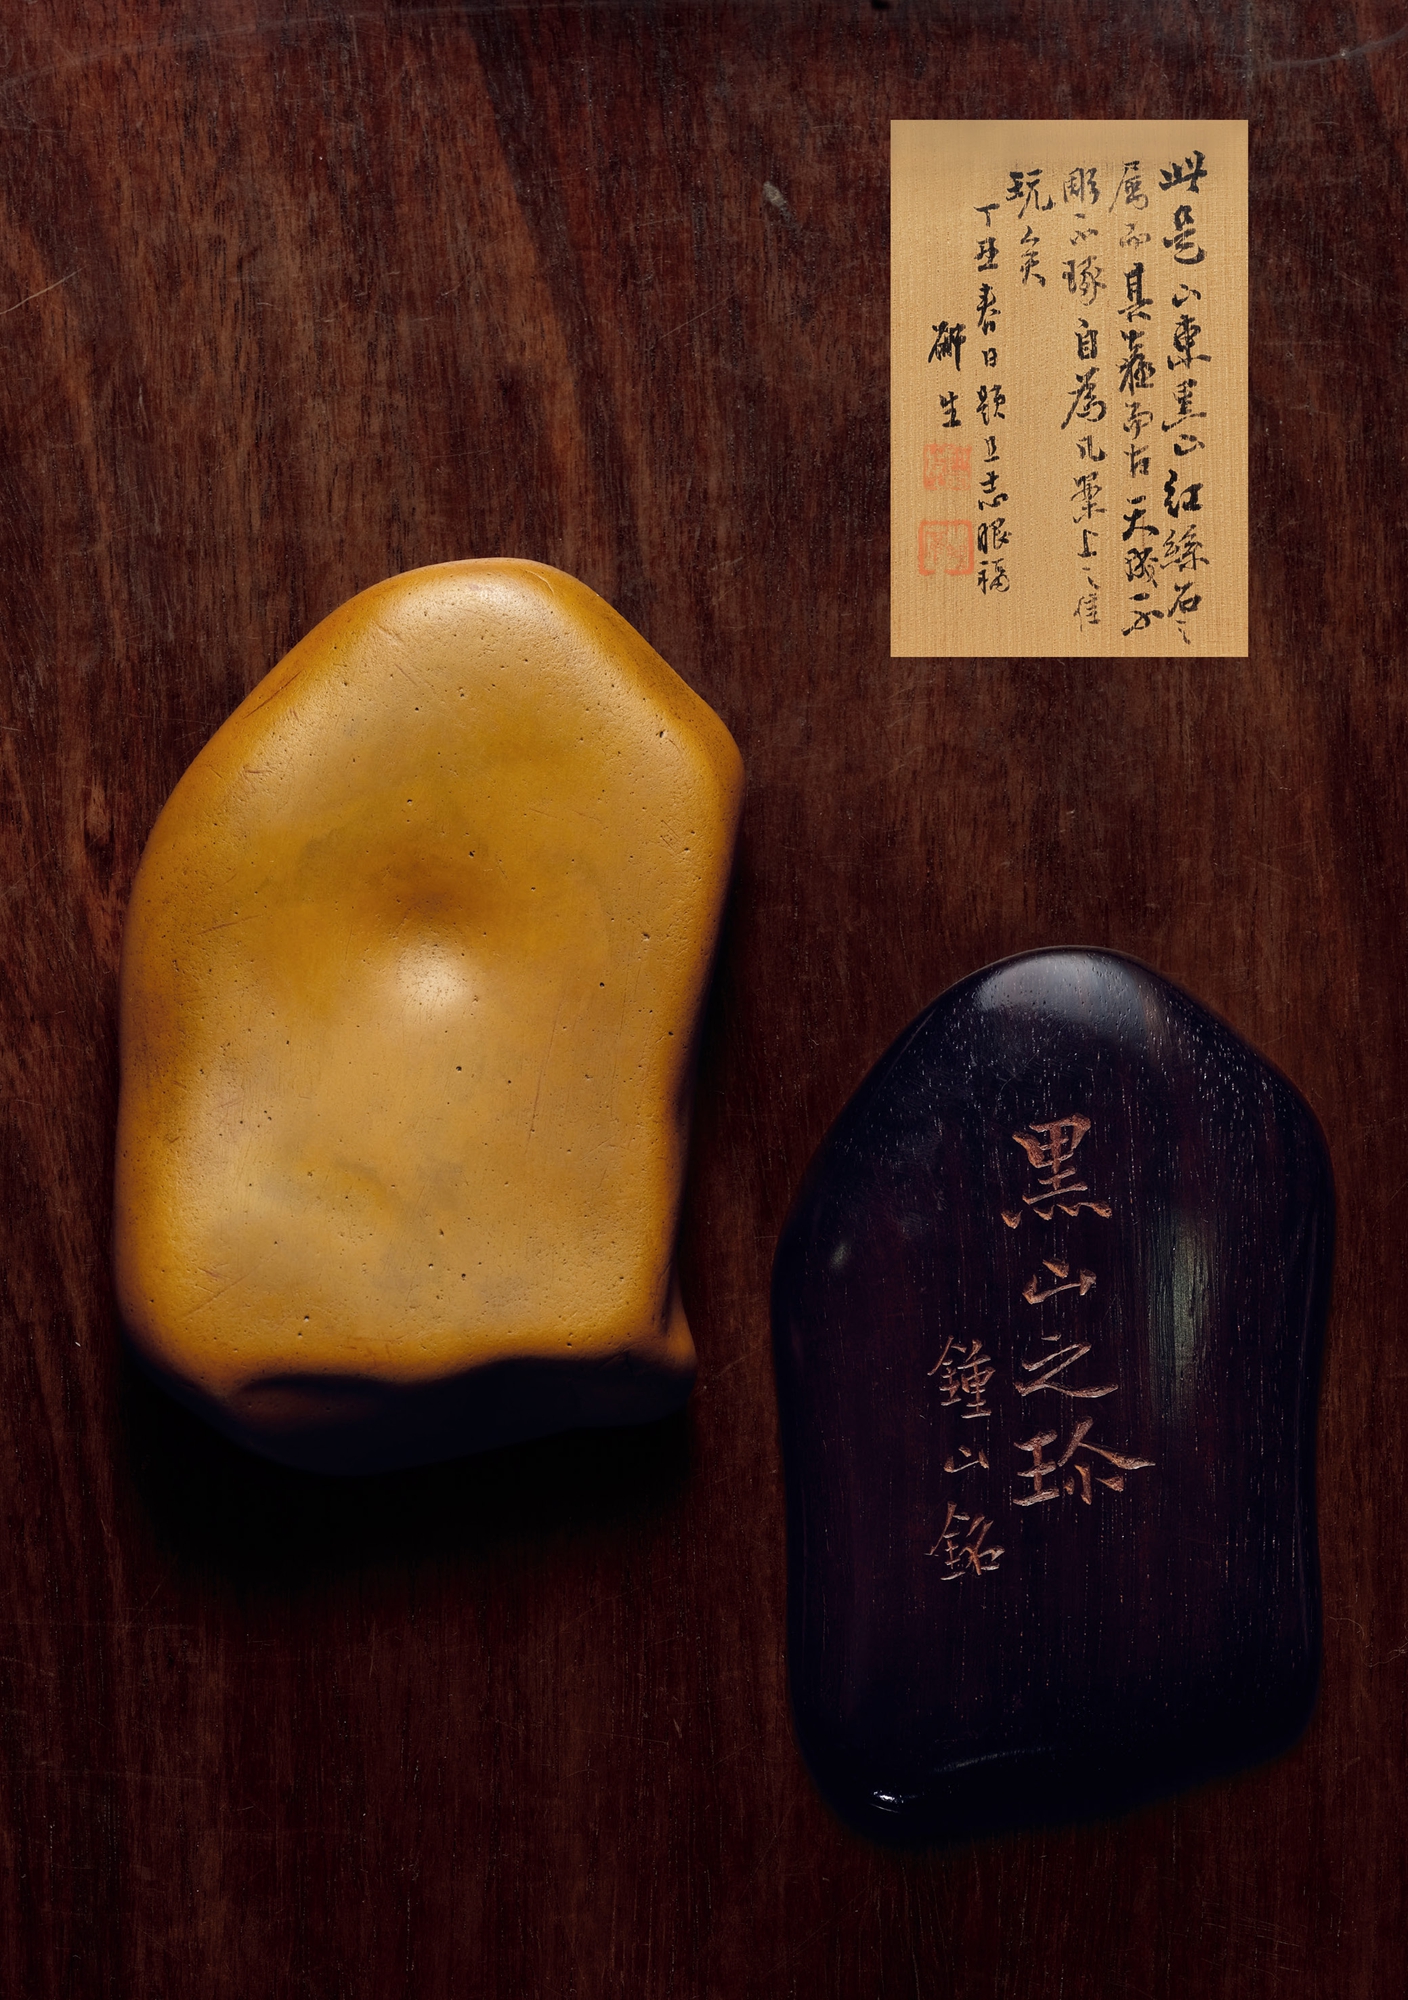 此是山東黑山紅絲石之
属而其蘊而古天成不
彫不琢自為几案上之佳
玩矣
丁丑春日題且志眼福
硏生
黑山之珍
鍾山銘